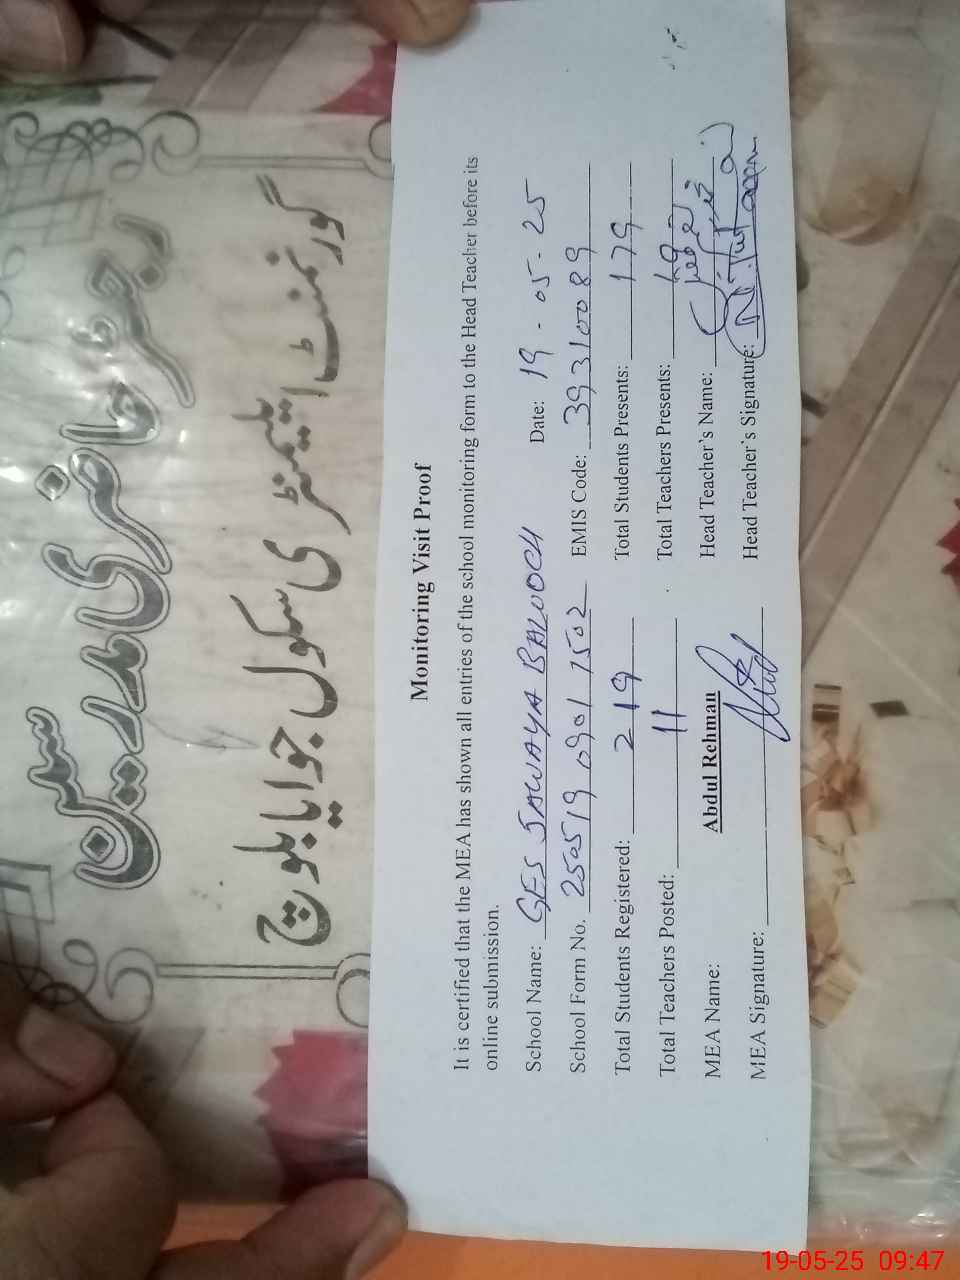 رجسٹر حاضری مدرسین
گورنمنٹ ایلیمنٹری سکول جوایا بلوچ
Monitoring Visit Proof
It is certified that the MEA has shown all entries of the school monitoring form to the Head Teacher before its
online submission.
School Name: GES JAWAYA BALOOCH Date: 19-05-25
School Form No. 250519 0901 1502 EMIS Code: 39310089
Total Students Registered: 219 Total Students Presents: 179
Total Teachers Posted: 11 Total Teachers Presents:
MEA Name: Abdul Rehman Head Teacher's Name:
MEA Signature: Head Teacher's Signature:
19-05-25 09:47